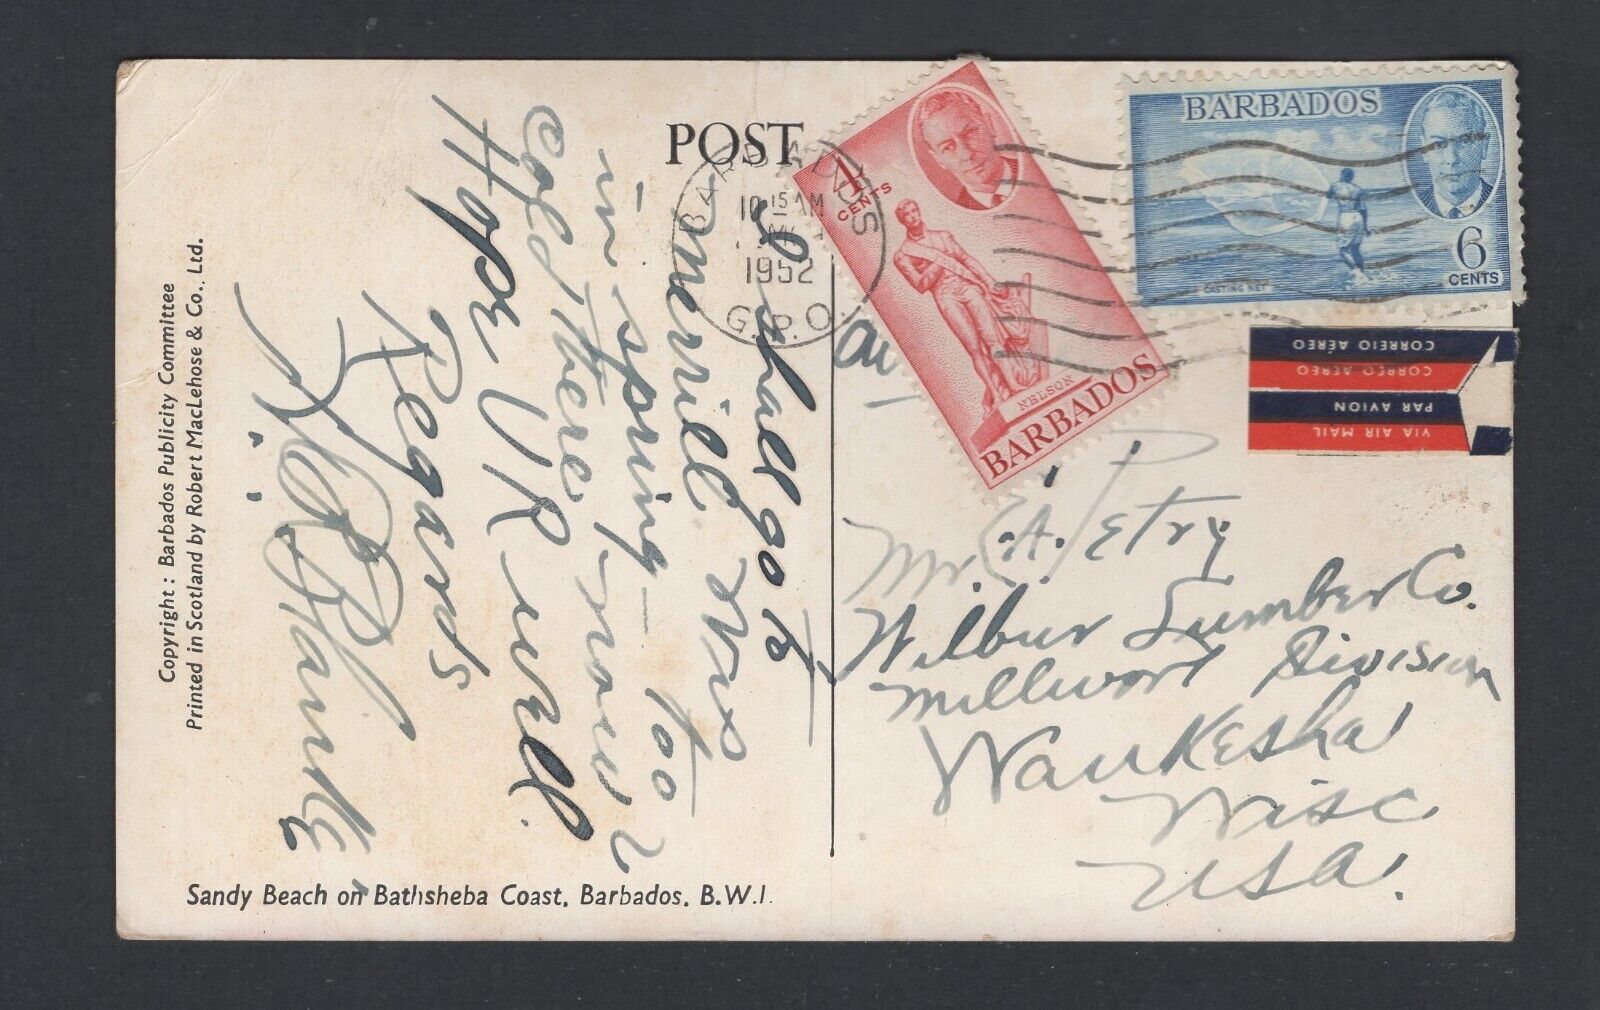 POST
BARBADOS
10 15 AM
1952
G.P.O.
4
CENTS
NELSON
BARBADOS
BARBADOS
CASTING NET
6
CENTS
VIA AIR MAIL
PAR AVION
CORREO AEREO
CORREIO AÉREO
I shall go to
Merrill Wis
in spring – too
cold there now
Hope UR well.
Regards
Mr. E.A. Petry
Wilbur Lumber Co.
Millwork Division
Waukesha
Wisc
USA.
Copyright : Barbados Publicity Committee
Printed in Scotland by Robert MacLehose & Co., Ltd.
Sandy Beach on Bathsheba Coast, Barbados, B.W.I.